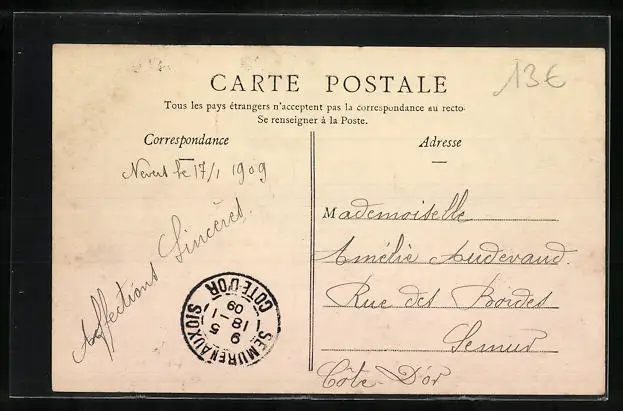 13€
CARTE POSTALE
Tous les pays étrangers n'acceptent pas la correspondance au recto.
Se renseigner à la Poste.
Correspondance
Adresse
Nevers le 17/1 1909
Affections Sincères.
Mademoiselle
Amélie Audevaud.
Rue des Bordes
Semur
Côte D'or
SEMUR EN AUXOIS
9
18 - 5
1
09
COTE-D'OR